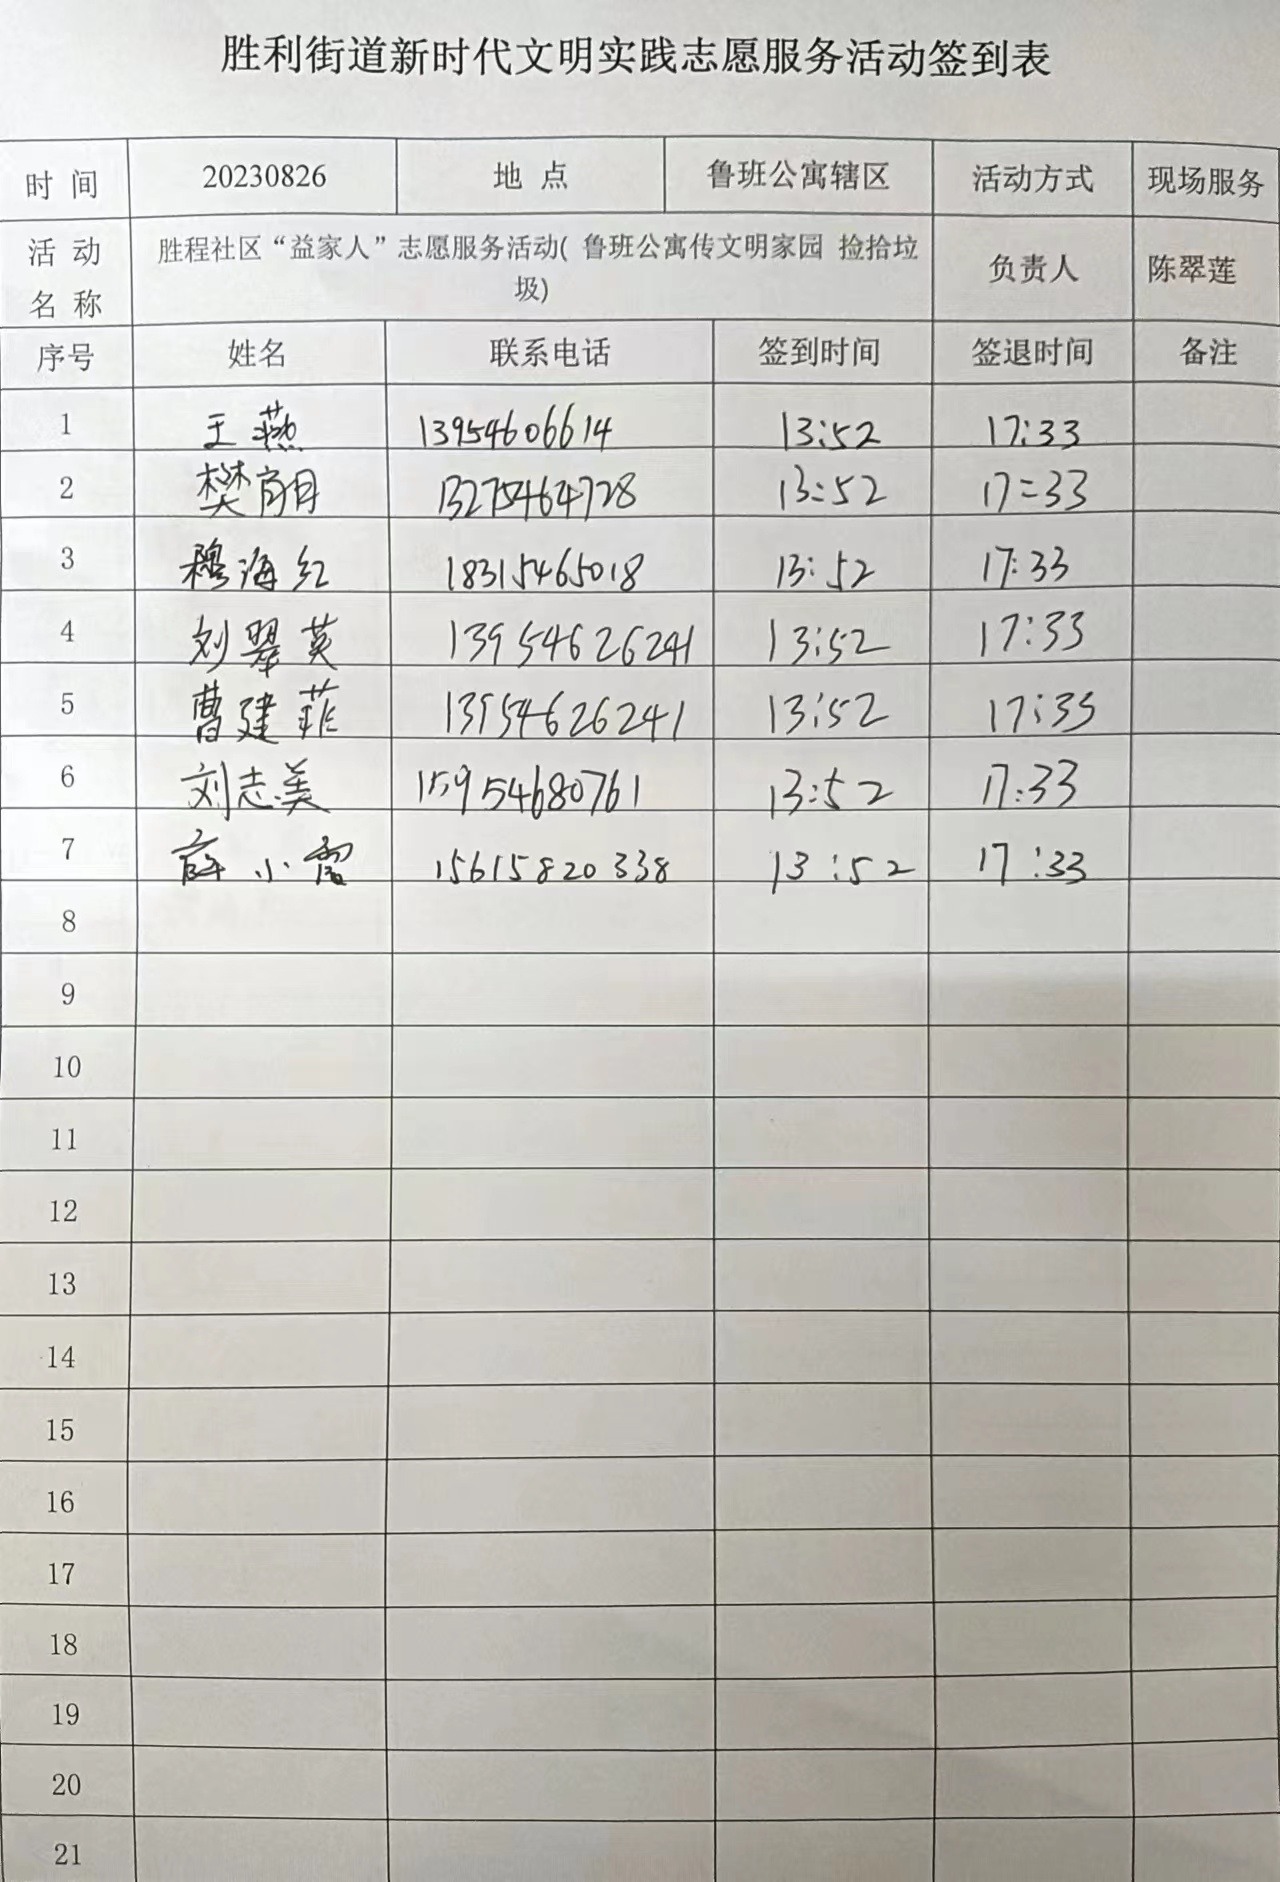 胜利街道新时代文明实践志愿服务活动签到表
时 间 20230826 地 点 鲁班公寓辖区 活动方式 现场服务
活 动 名 称 胜程社区“益家人”志愿服务活动( 鲁班公寓传文明家园 捡拾垃
圾) 负责人 陈翠莲
序号 姓名 联系电话 签到时间 签退时间 备注
1 王燕 13954606614 13:52 17:33
2 樊 13275464728 13:52 17:33
3 穆海红 18315465018 13:52 17:33
4 刘翠英 13954626241 13:52 17:33
5 曹建菲 13954626241 13:52 17:33
6 刘志美 15954680761 13:52 17:33
7 薛小雷 15615820338 13:52 17:33
8
9
10
11
12
13
14
15
16
17
18
19
20
21